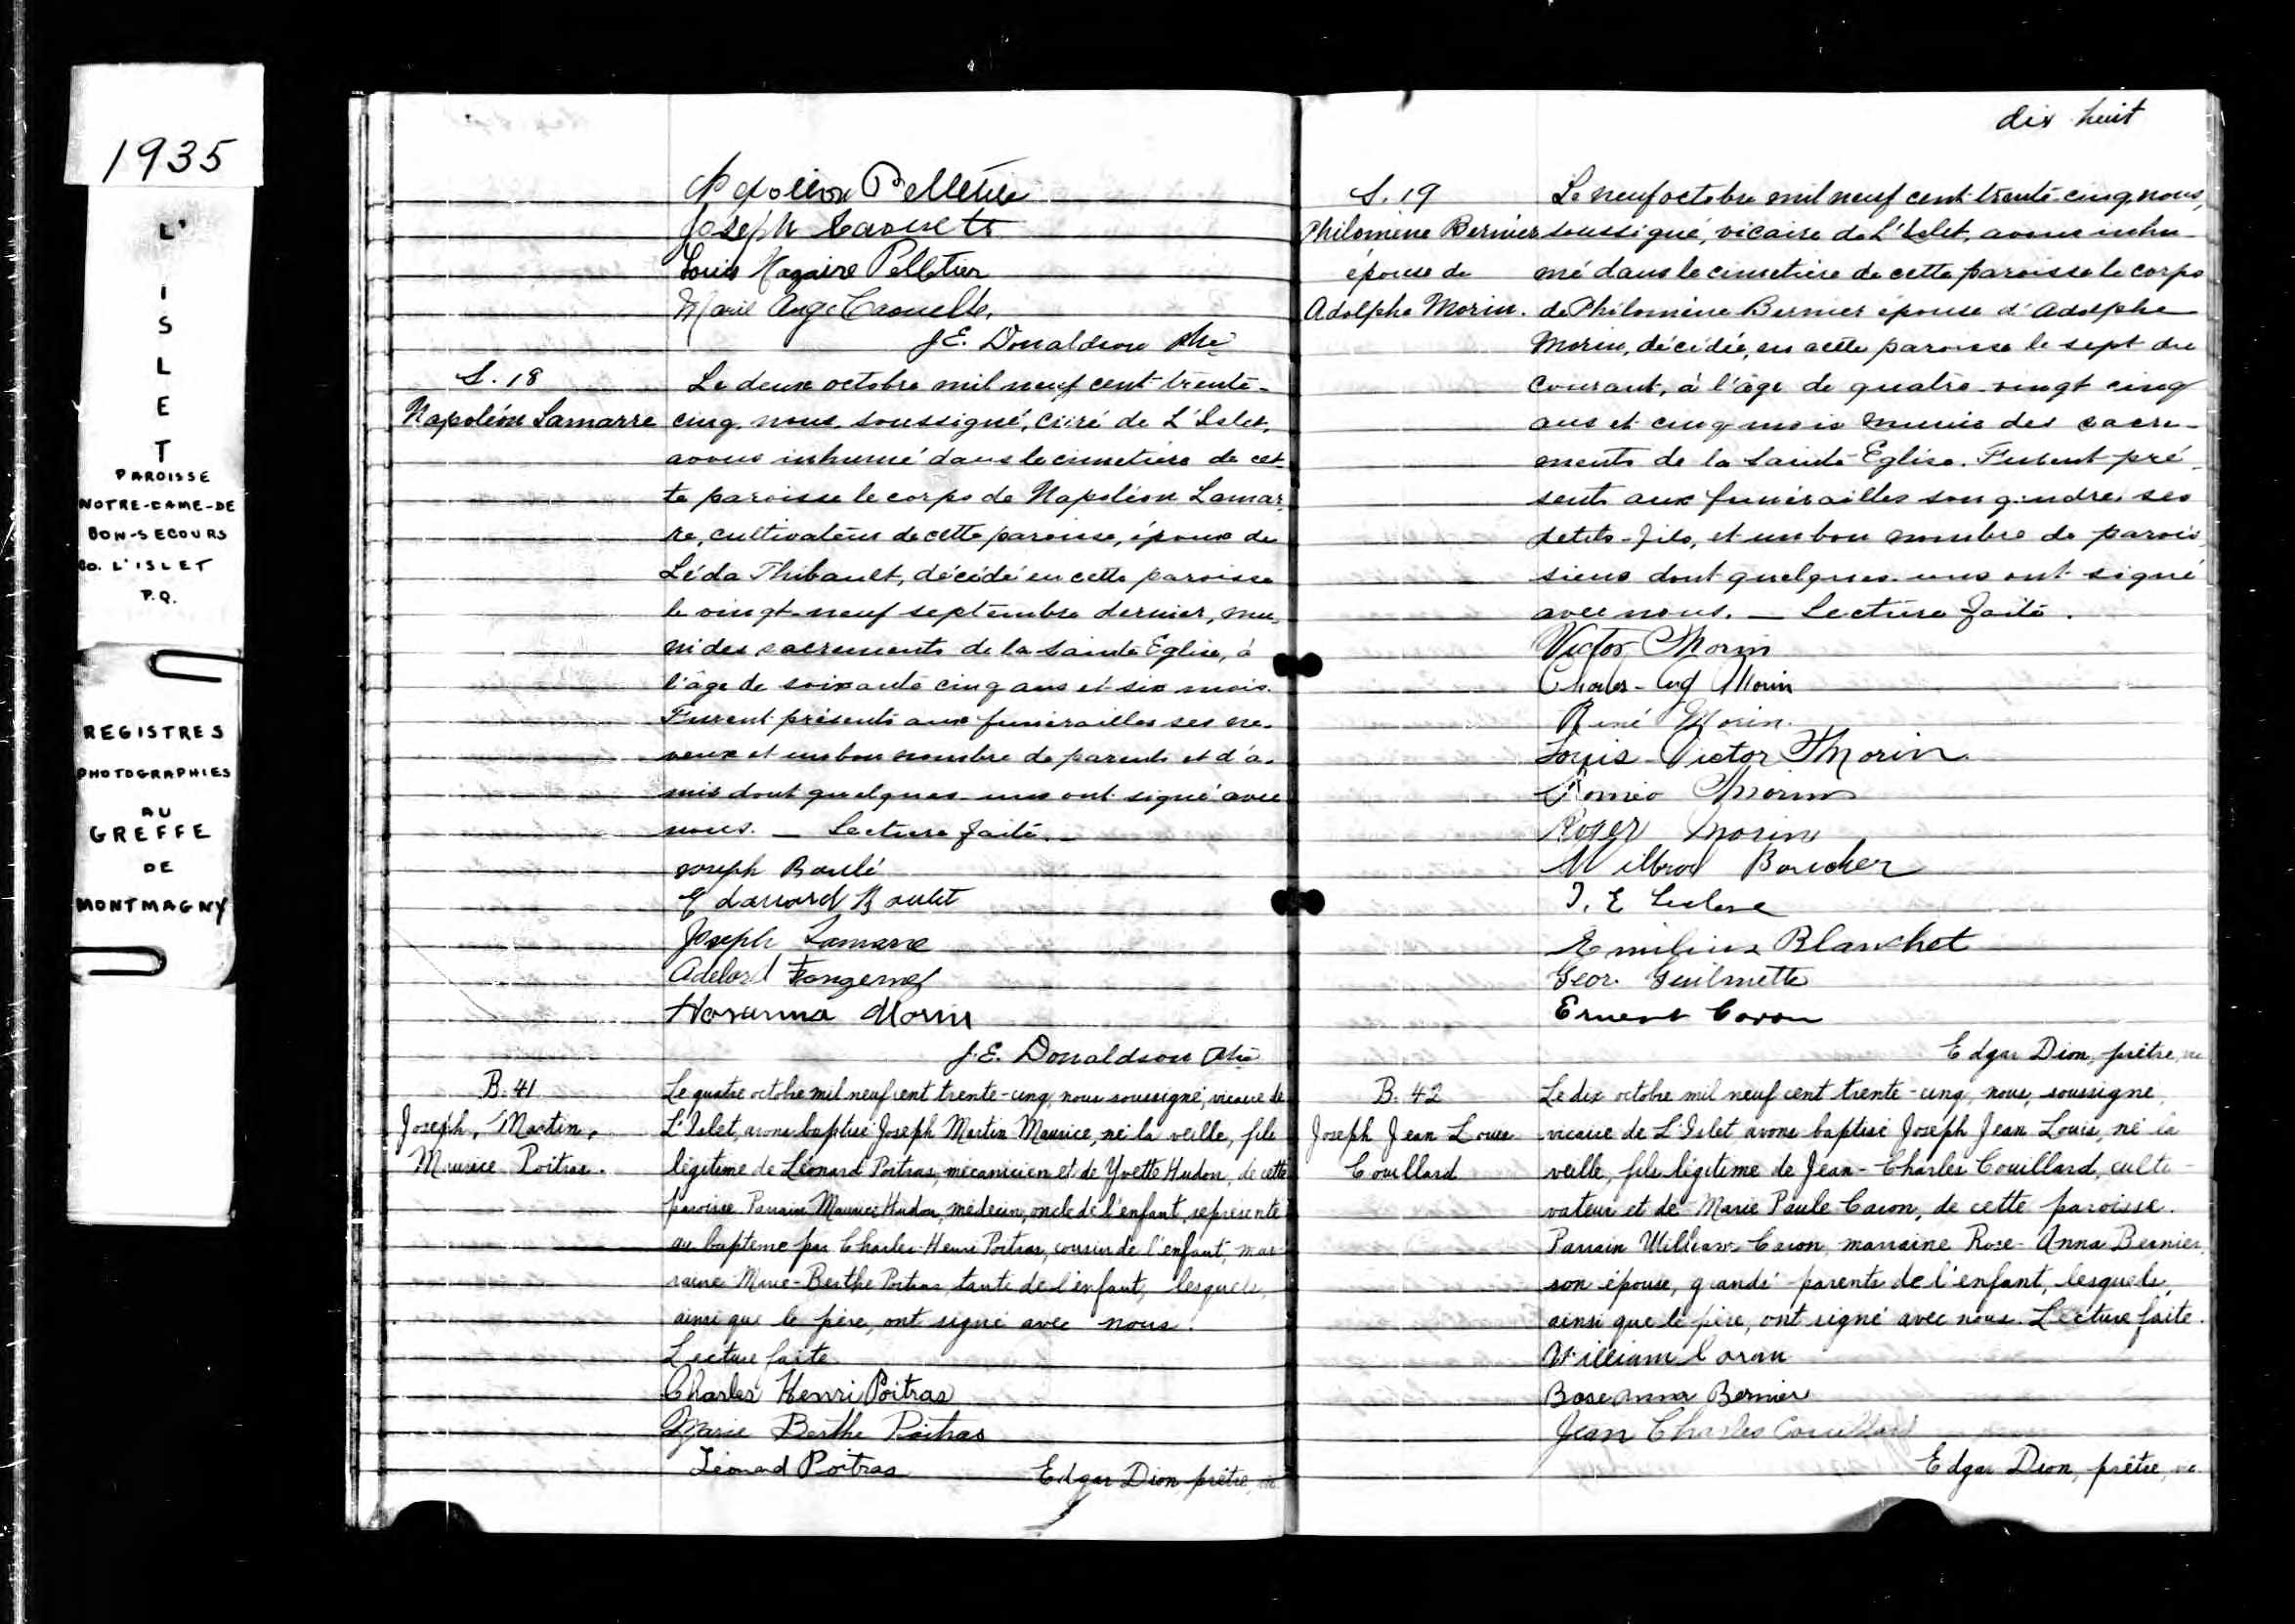 1935
L'
I
S
L
E
T
PAROISSE
NOTRE-DAME-DE
BON-SECOURS
CO. L'ISLET
P.Q.
REGISTRES
PHOTOGRAPHIES
AU
GREFFE
DE
MONTMAGNY
Napoléon Pelletier
Joseph Caouette
Louis Nazaire Pelletier
Marie Ange Caouette
J.E. Donaldson Ptre
S. 18
Napoléon Lamarre
Le deux octobre mil neuf cent trente-
cinq, nous soussigné, curé de L'Islet,
avons inhumé dans le cimetière de cet-
te paroisse le corps de Napoléon Lamar-
re, cultivateur de cette paroisse, époux de
Léda Thibault, décédé en cette paroisse
le vingt-neuf septembre dernier, mu-
ni des sacrements de la Sainte Eglise, à
l'âge de soixante cinq ans et six mois.
Furent présents aux funérailles ses ne-
veux et un bon nombre de parents et d'a-
mis dont quelques-uns ont signé avec
nous. — Lecture faite. —
Joseph Boulé
Edouard Boulet
Joseph Lamarre
Adelard
Morin
J.E. Donaldson Ptre
B. 41
Joseph, Martin,
Maurice Poitras.
Le quatre octobre mil neuf cent trente-cinq, nous soussigné, vicaire de
L'Islet, avons baptisé Joseph Martin Maurice, né la veille, fils
légitime de Léonard Poitras, mécanicien et de Yvette Hudon, de cette
paroisse. Parrain Maurice Hudon, médecin, oncle de l'enfant, représenté
au baptême par Charles-Henri Poitras, cousin de l'enfant, mar-
raine Marie-Berthe Poitras, tante de l'enfant, lesquels,
ainsi que le père, ont signé avec nous.
Lecture faite
Charles Henri Poitras
Marie Berthe Poitras
Léonard Poitras
Edgar Dion, prêtre, vic.
dix huit
S. 19
Philomène Bernier
épouse de
Adolphe Morin.
Le neuf octobre mil neuf cent trente-cinq, nous,
soussigné, vicaire de L'Islet, avons inhu-
mé dans le cimetière de cette paroisse le corps
de Philomène Bernier épouse d'Adolphe
Morin, décédée, en cette paroisse le sept du
courant, à l'âge de quatre-vingt cinq
ans et cinq mois munie des sacre-
ments de la Sainte Eglise. Furent pré-
sents aux funérailles son gendre, ses
petits-fils, et un bon nombre de parois-
siens dont quelques-uns ont signé
avec nous. — Lecture faite.
Victor Morin
Charles-Aug Morin
René Morin.
Louis-Victor Morin
Roméo Morin
Roger Morin
Wilbrod Boucher
J. E Leclerc
Emilius Blanchet
Geor. Guilmette
Ernest Caron
Edgar Dion, prêtre, vic
B. 42
Joseph Jean Louis
Couillard
Le dix octobre mil neuf cent trente-cinq, nous, soussigné,
vicaire de L'Islet avons baptisé Joseph Jean Louis, né la
veille, fils légitime de Jean-Charles Couillard, culti-
vateur et de Marie Paule Caron, de cette paroisse.
Parrain William Caron, marraine Rose-Anna Bernier,
son épouse, grands-parents de l'enfant, lesquels,
ainsi que le père, ont signé avec nous. Lecture faite.
William Caron
Rose Anna Bernier
Jean Charles Couillard
Edgar Dion, prêtre, vic.